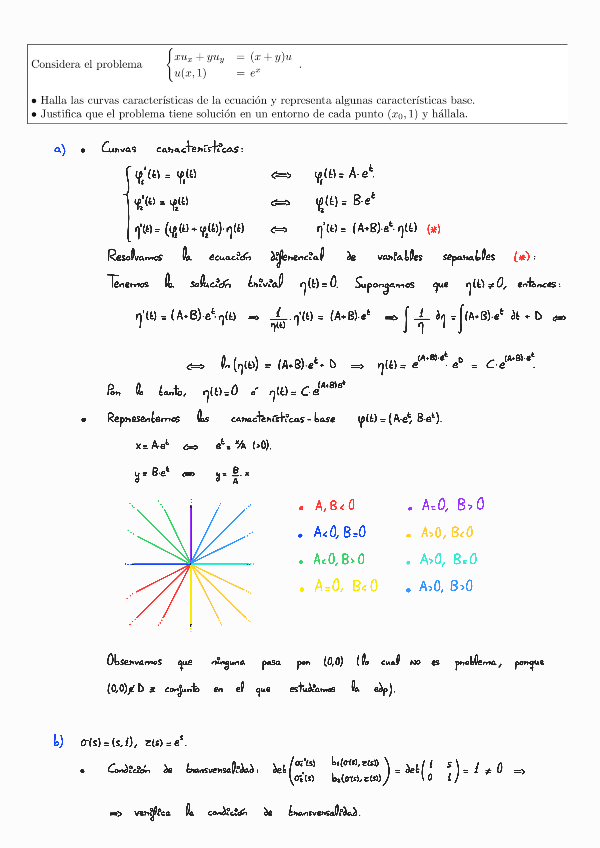 Considera el problema { xu_x + yu_y = (x + y)u
u(x, 1) = e^x .
• Halla las curvas características de la ecuación y representa algunas características base.
• Justifica que el problema tiene solución en un entorno de cada punto (x_0, 1) y hállala.
a) • Curvas características:
φ_1'(t) = φ_1(t) ⟺ φ_1(t) = A·e^t.
φ_2'(t) = φ_2(t) ⟺ φ_2(t) = B·e^t
η'(t) = (φ_1(t) + φ_2(t))·η(t) ⟺ η'(t) = (A+B)·e^t·η(t) (*)
Resolvamos la ecuación diferencial de variables separables (*):
Tenemos la solución trivial η(t)=0. Supongamos que η(t)≠0, entonces:
η'(t) = (A+B)·e^t·η(t) ⟹ 1/η(t)·η'(t) = (A+B)·e^t ⟹ ∫ 1/η dη = ∫(A+B)·e^t dt + D ⟺
⟺ ln(η(t)) = (A+B)·e^t + D ⟹ η(t) = e^{(A+B)·e^t}·e^D = C·e^{(A+B)·e^t}.
Por lo tanto, η(t)=0 ó η(t)=C·e^{(A+B)e^t}
• Representemos las características-base φ(t)=(A·e^t, B·e^t).
x = A·e^t ⟺ e^t = x/A (>0).
y = B·e^t ⟺ y = B/A·x
• A, B < 0 • A=0, B>0
• A<0, B=0 • A>0, B<0
• A<0, B>0 • A>0, B=0
• A=0, B<0 • A>0, B>0
Observamos que ninguna pasa por (0,0) (lo cual NO es problema, porque
(0,0)∉D ≡ conjunto en el que estudiamos la edp).
b) σ(s)=(s,1), z(s)=e^s.
• Condición de transversalidad: det(σ_1'(s) b_1(σ(s),z(s)) σ_2'(s) b_2(σ(s),z(s))) = det(1 s 0 1) = 1 ≠ 0 ⟹
⟹ verifica la condición de transversalidad.